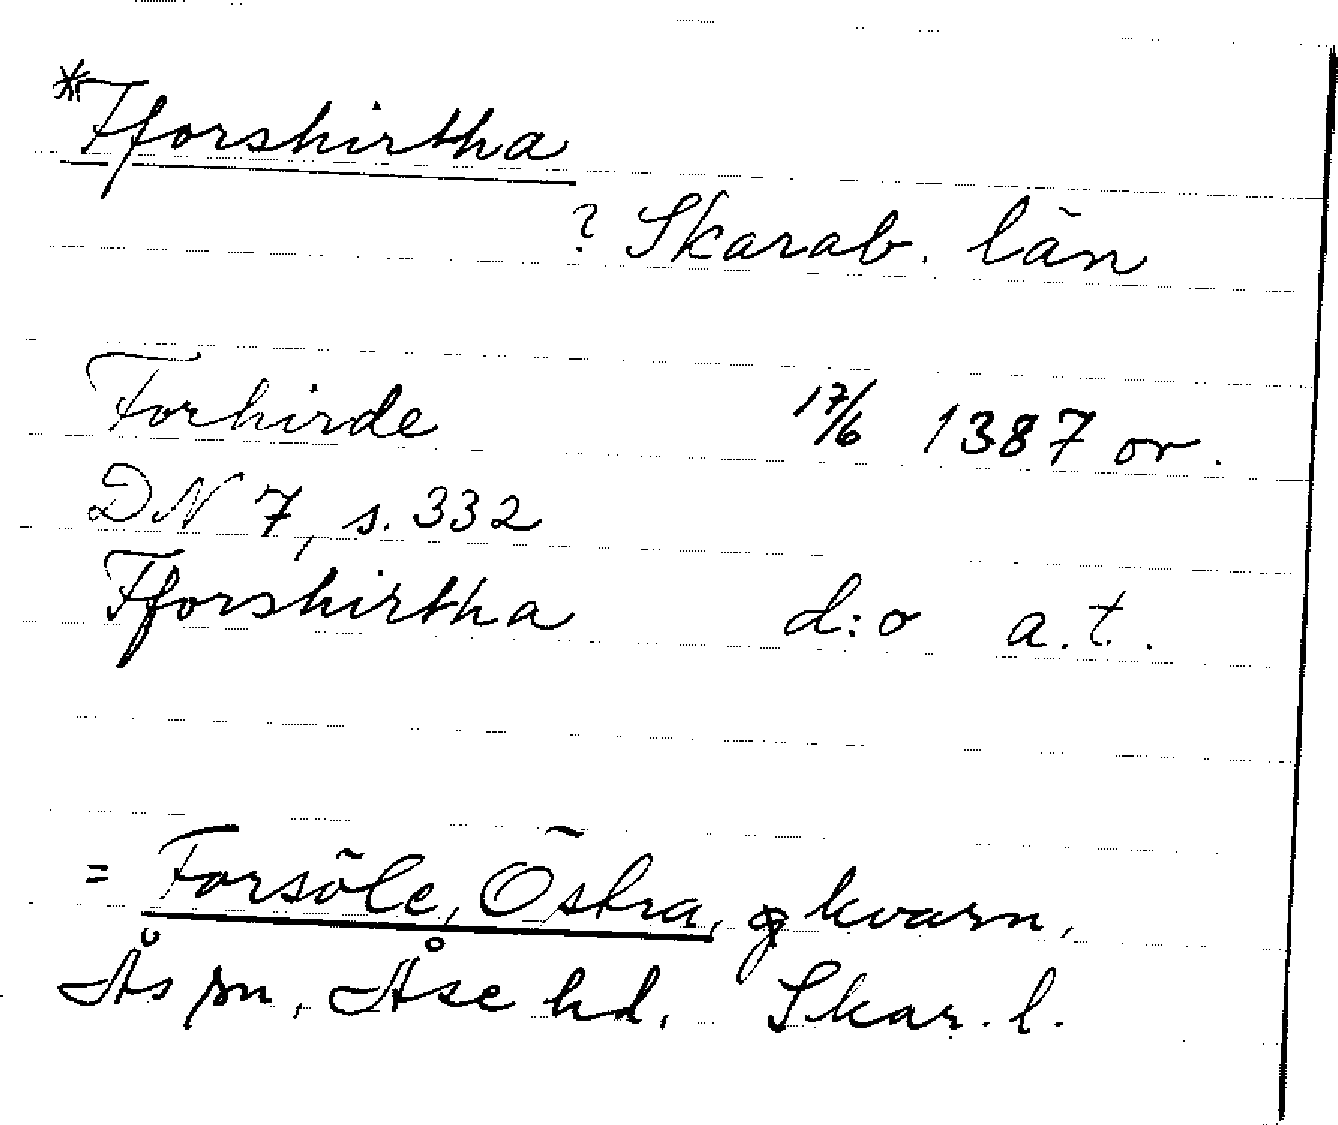 *Fforshirtha
? Skarab. län
Forhirde 17/6 1387 or.
DN 7, s. 332
Fforshirtha d:o a.t.
= Forsöle, Östra, kvarn,
Ås sn, Åse hd, Skar. l.